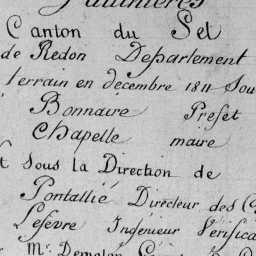 Canton du Sel
de Redon Département
terrain en décembre 1811 Sou
Bonnaire Préfet
Chapelle maire
t Sous la Direction de
Pontallié Directeur des C
Lefévre Ingénieur Vérifica
Mr. Demolon